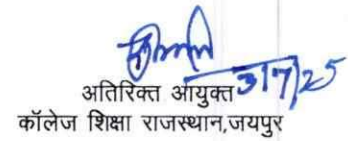 3/7/25
अतिरिक्त आयुक्त
कॉलेज शिक्षा राजस्थान,जयपुर